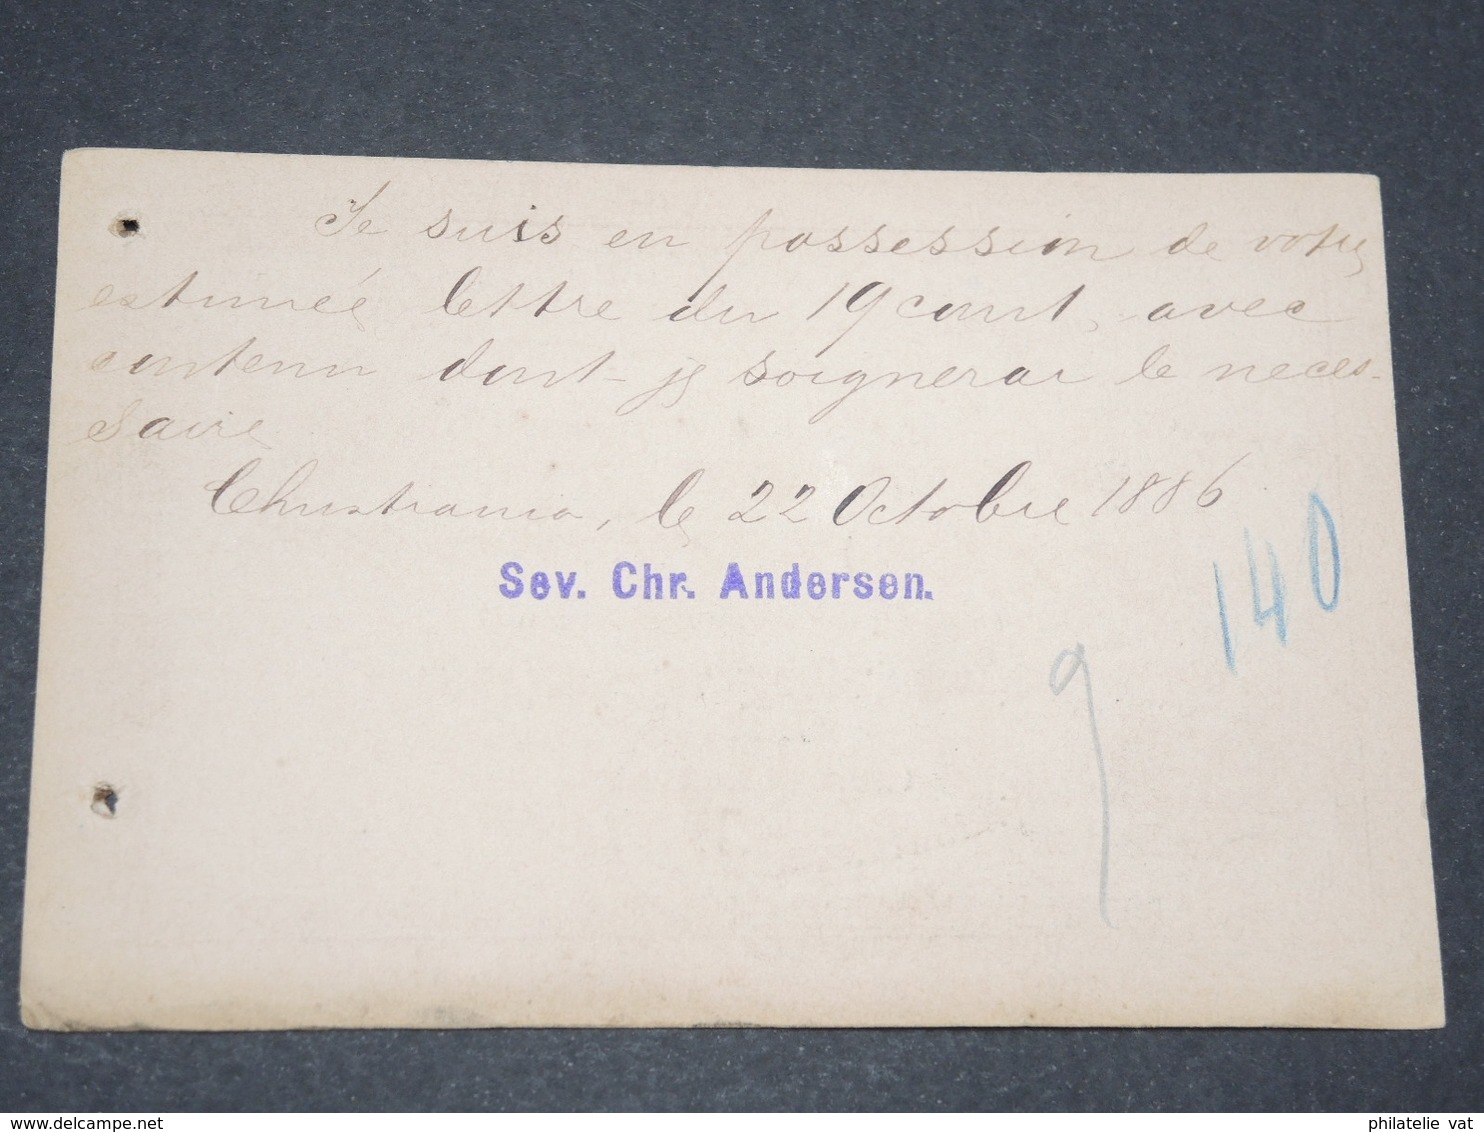 Je suis en possession de votre
estimée lettre du 19 court, avec
contenu dont je soignerai le neces-
saire
Christiania, le 22 Octobre 1886
Sev. Chr. Andersen.
140
9
www.delcampe.net
philatelie vat